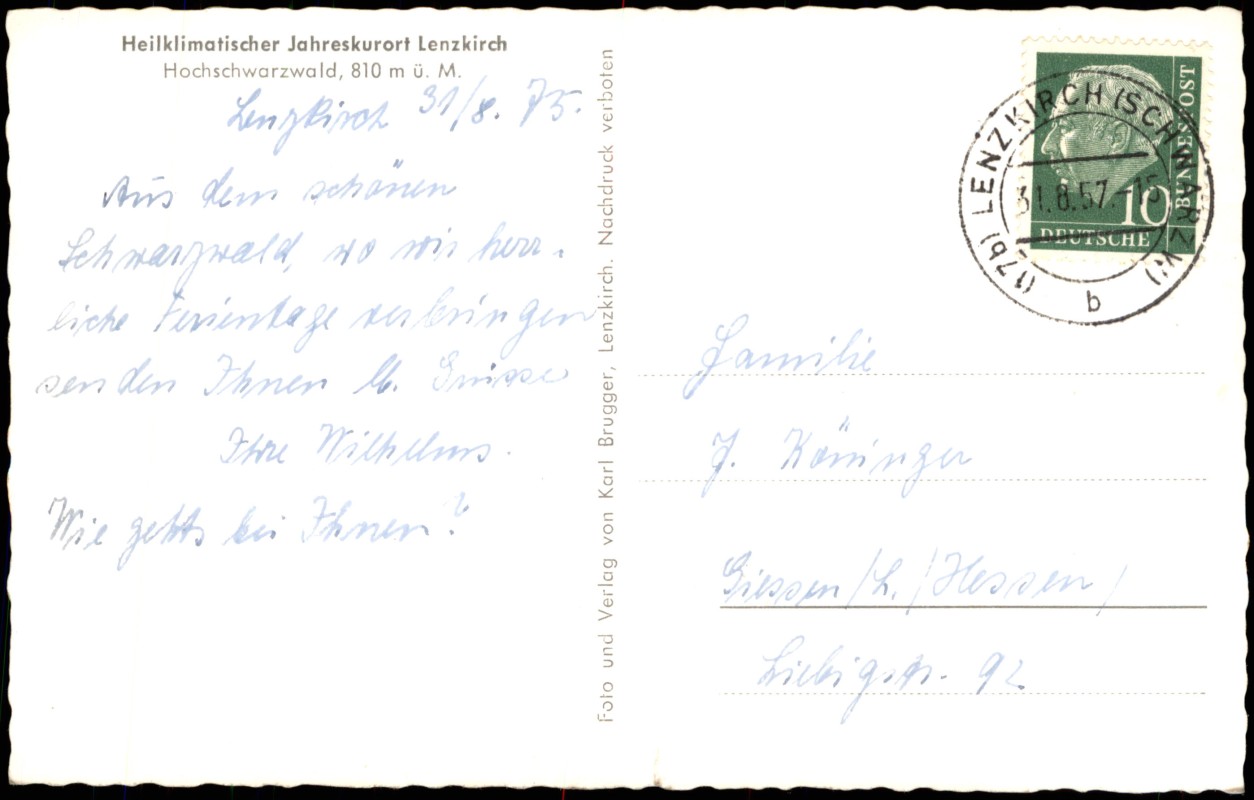 Heilklimatischer Jahreskurort Lenzkirch
Hochschwarzwald, 810 m ü. M.
Lenzkirch 31/8. 75.
Aus dem schönen
Schwarzwald, wo wir herr-
liche Ferientage verbringen
senden Ihnen lb. Grüsse
Ihre Wilhelms.
Wie gehts bei Ihnen?
Foto und Verlag von Karl Brugger, Lenzkirch. Nachdruck verboten
DEUTSCHE
BUNDESPOST
10
(17b) LENZKIRCH (SCHWARZW)
31.8.57.-15
b
Familie
J. Köninger
Giessen/L. /Hessen/
Liebigstr. 92